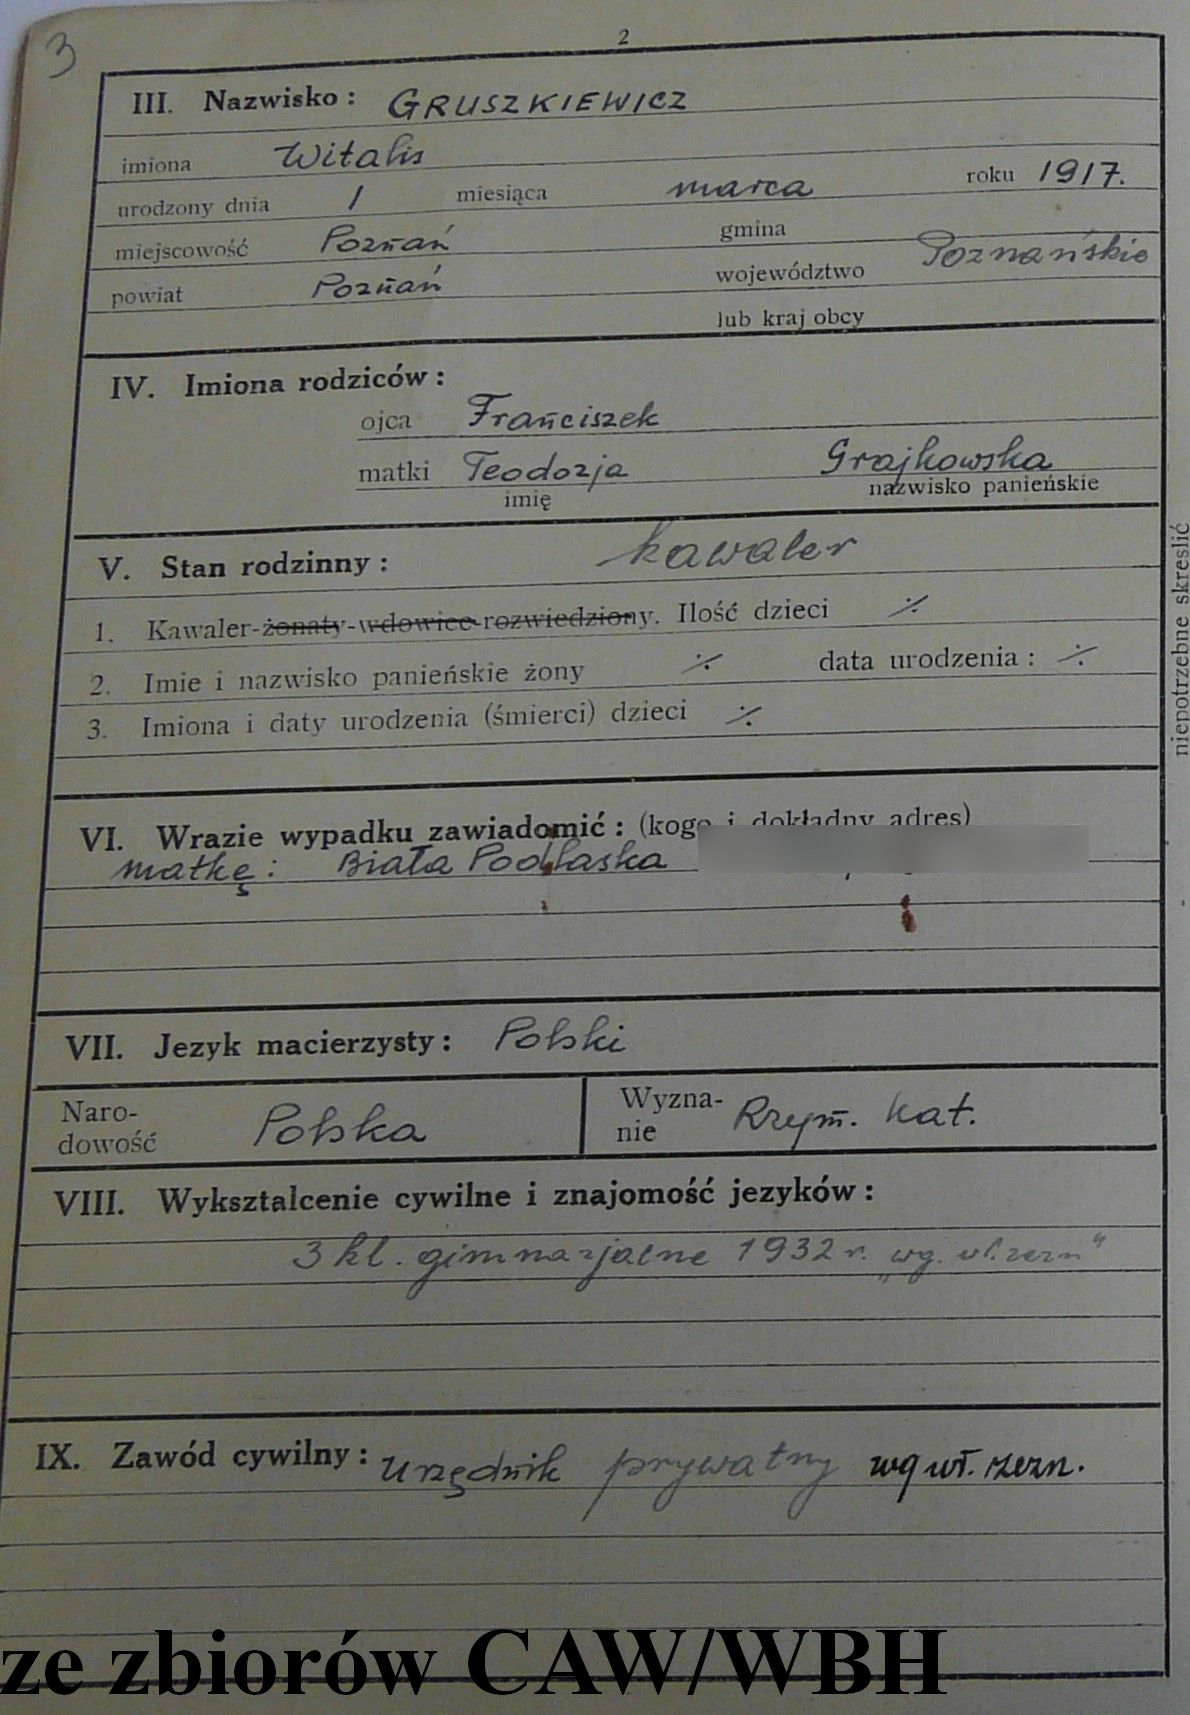 3
2
III. Nazwisko: GRUSZKIEWICZ
imiona Witalis
urodzony dnia 1 miesiąca marca roku 1917.
miejscowość Poznań gmina
powiat Poznań województwo Poznańskie
lub kraj obcy
IV. Imiona rodziców:
ojca Franciszek
matki Teodozja Grajkowska
imię nazwisko panieńskie
V. Stan rodzinny: kawaler
1. Kawaler-żonaty-wdowiec-rozwiedziony. Ilość dzieci ./.
2. Imie i nazwisko panieńskie żony ./. data urodzenia: ./.
3. Imiona i daty urodzenia (śmierci) dzieci ./.
niepotrzebne skreslić
VI. Wrazie wypadku zawiadomić: (kogo i dokładny adres)
matkę: Biała Podlaska
VII. Jezyk macierzysty: Polski
Naro-
dowość Polska
Wyzna-
nie Rzym. Kat.
VIII. Wyksztalcenie cywilne i znajomość jezyków:
3 kl. gimnazjalne 1932 r. „wg. wł. zezn"
IX. Zawód cywilny: urzędnik prywatny wg wł. zezn.
ze zbiorów CAW/WBH